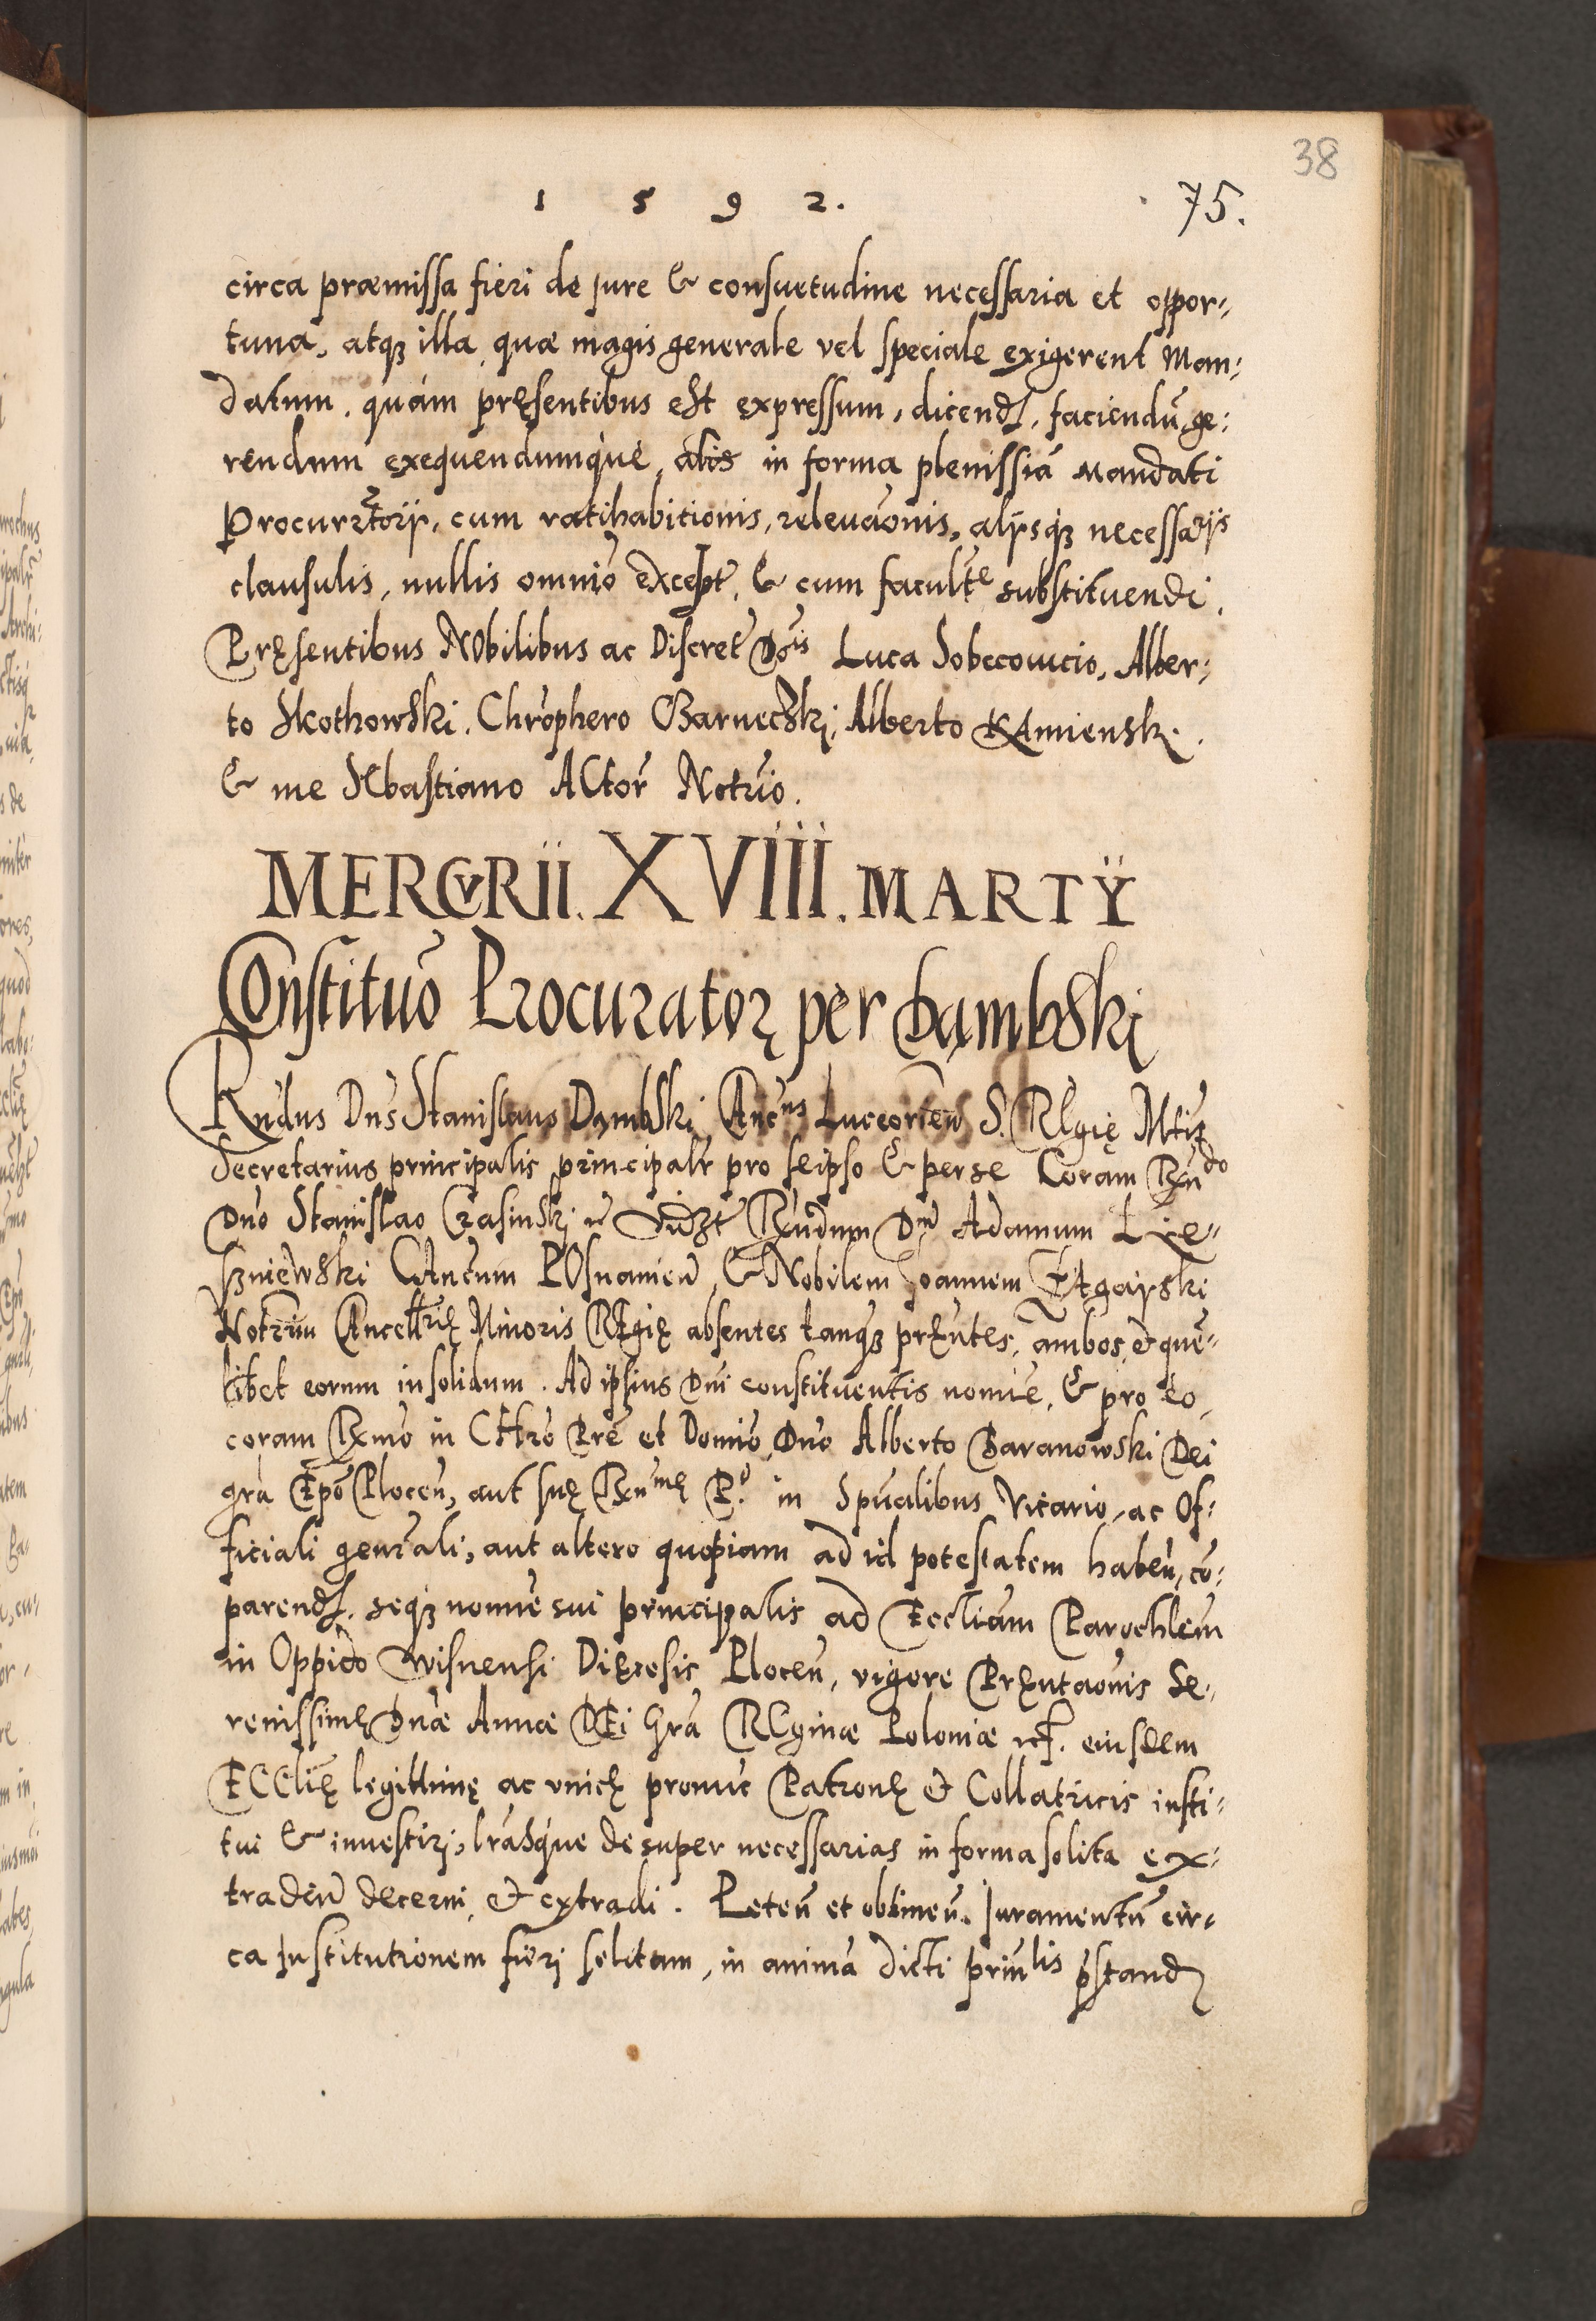 38
1 5 9 2. 75.
circa præmissa fieri de jure & consuetudine necessaria et oppor-
tuna, atq3 illa quæ magis generale vel speciale exigerent Man-
datum, quàm pręsentibus est expressum, dicend, faciendū, ge-
rendum exequendumque, alis in forma plenissiā Mandati
Procurãtorij, cum ratihabitionis, releuãonis, alijsq3 necessarijs
clausulis, nullis omnīo except, & cum facultẽ substituendi.
Pręsentibus Nobilibus ac Discret Dōis Luca Sobecouicio, Alber-
to Skothowski, Chrōphero Barneczki, Alberto Kamiensk.
& me Sebastiano ACtor̄ Notrīo.
MERCVRII. XVIII. MARTY
COnstitūo Procurator per Dąmbski
Rndus Dns Stanislaus Dąmbski, Canćus Luceorien S. REgię Mtis
Secretarius principalis principalr̄ pro seipso & per se Coram Rndo
Dno Stanislao Crasinski Vidzt Rndum Dm̄ Adamum Lxe-
szniewski CAncum POsnanien, & Nobilem Joannem
Notrium Cancellrię Minoris REgię absentes tanq3 pręntes, ambos, & quē-
libet eorum in solidum. Ad ipsius Dni constituentis nomīe, & pro eo,
coram Rxmo in CHro Prẽ et Domīo Dno Alberto Baranowski Dei
grã Epō Plocen, aut suę Rnmę P. in Spūalibus Vicario, ac Of-
ficiali genrali, aut altero quopiam ad id potestatem haben, cō-
parend, seq3 nomīe sui principalis ad Eccliam Parochlem
in Oppido Wisnensi Dięcesis Plocen, vigore Pręntãonis Se-
renissimę Dnæ Annæ DEi Gra REginæ Poloniæ etc. eiusdem
ECClię legittimę ac vnicę pronūc Patronę & Collatricis insti-
tui & inuestiri, lrãsque desuper necessarias in forma solita ex-
tradein decerni & extradi. Peten et obtinen. Juramentū cir-
ca Institutionem fieri solitam, in animã dicti prinlis pstand